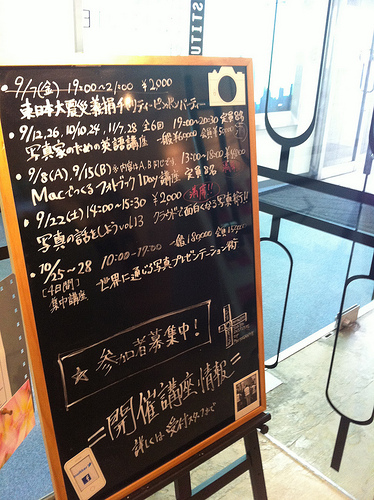 STITU
• 9/7(金) 19:00~21:00 ¥2,000
東日本大震災義捐チャリティーピンポンパーティー
• 9/12,26,10/10,24,11/7,28 全6回 19:00~20:30 定員8名
写真家のための英語講座 一般¥6000 会員¥5000
• 9/8(A),9/15(B) ※内容はA,B同じです。13:00~18:00 ¥8000
Macでつくるフォトブック 1Day講座 定員8名 満席!!
• 9/22(土) 14:00~15:30 ¥2000
写真の話をしよう vol.13 クラシックで面白くなる写真術!!
• 10/25~28 10:00-17:00 一般
[4日間]
集中講座 世界に通じる写真プレゼンテーション術
★ 参加者募集中!
=開催講座情報=
詳しくは受付スタッフまで